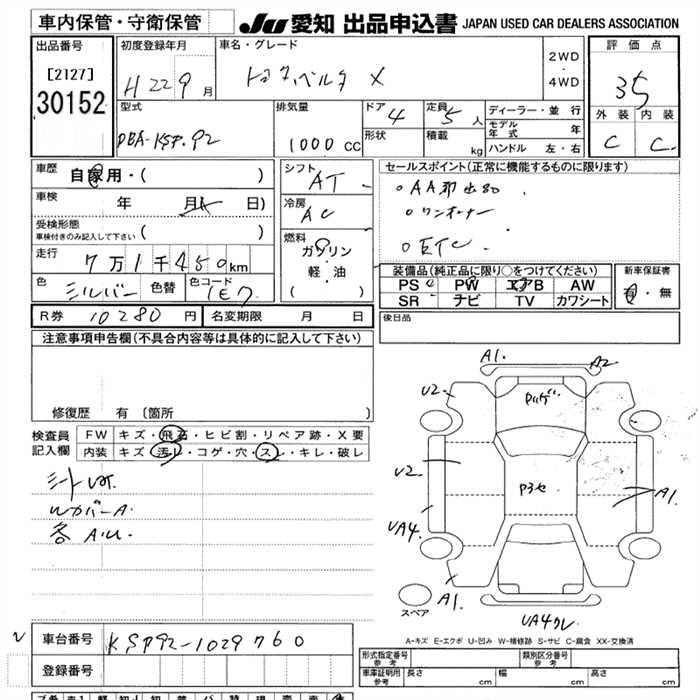 車内保管・守衛保管
JU 愛知 出品申込書 JAPAN USED CAR DEALERS ASSOCIATION
出品番号
[2127]
30152
初度登録年月
H 22 9 月
車名・グレード
トヨタ ベルタ X
2WD
・
4WD
評価点
35
外装 内装
C C
型式
DBA-KSP92
排気量
1000 CC
ドア 4
形状
定員 5 人
積載 kg
ディーラー・並行
モデル年式 年
ハンドル 左・右
車歴
自家用・( )
車検 年 月 日)
受検形態
車検付きのみ記入して下さい ( )
走行 7万1千450km
色 シルバー 色替 色コード 1E7
シフト AT
冷房 AC
燃料
ガソリン
軽・油
( )
セールスポイント(正常に機能するものに限ります)
○ワンオーナー
○ETC
装備品(純正品に限り○をつけてください)
PS PW エアB AW
SR ナビ TV カワシート
新車保証書
有・無
R券 10280 円 名変期限 月 日
後日品
注意事項申告欄(不具合内容等は具体的に記入して下さい)
修復歴 有 〔箇所 〕
検査員記入欄
FW キズ・飛石・ヒビ割・リペア跡・X要
内装 キズ・汚レ・コゲ・穴・スレ・キレ・破レ
WカバーA.
各 A.U.
A1. A2
U2 Pハゲ
U2 Pヨセ A1.
UA4.
A1. UA4クレ
スペア
A-キズ E-エクボ U-凹み W-補修跡 S-サビ C-腐食 XX-交換済
車台番号 KSP92-1029760
登録番号
形式指定番号 参考
類別区分番号 参考
車庫証明用 参考 長さ cm 幅 cm 高さ cm